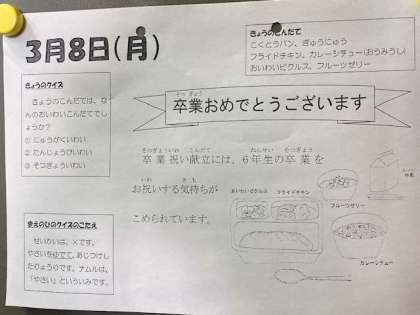 3月8日(月)
きょうのこんだて
こくとうパン、ぎゅうにゅう
フライドチキン、カレーシチュー(おうみうし)
おいわいピクルス、フルーツゼリー
きょうのクイズ
きょうのこんだては、な
んのおいわいこんだてでし
ょうか?
① にゅうがくいわい
② たんじょうびいわい
③ そつぎょういわい
そつ ぎょう
卒業おめでとうございます
そつぎょういわ こんだて ねんせい そつぎょう
卒業祝い献立には、6年生の卒業を
いわ き も
お祝いする気持ちが
こめられています。
まえのひのクイズのこたえ
せいかいは、×です。
やさいをゆ立て、あじつけし
たりょうりです。ナムルは、
「やさい」といういみです。
おいわいピクルス
フライドチキン
フルーツゼリー
カレーシチュー